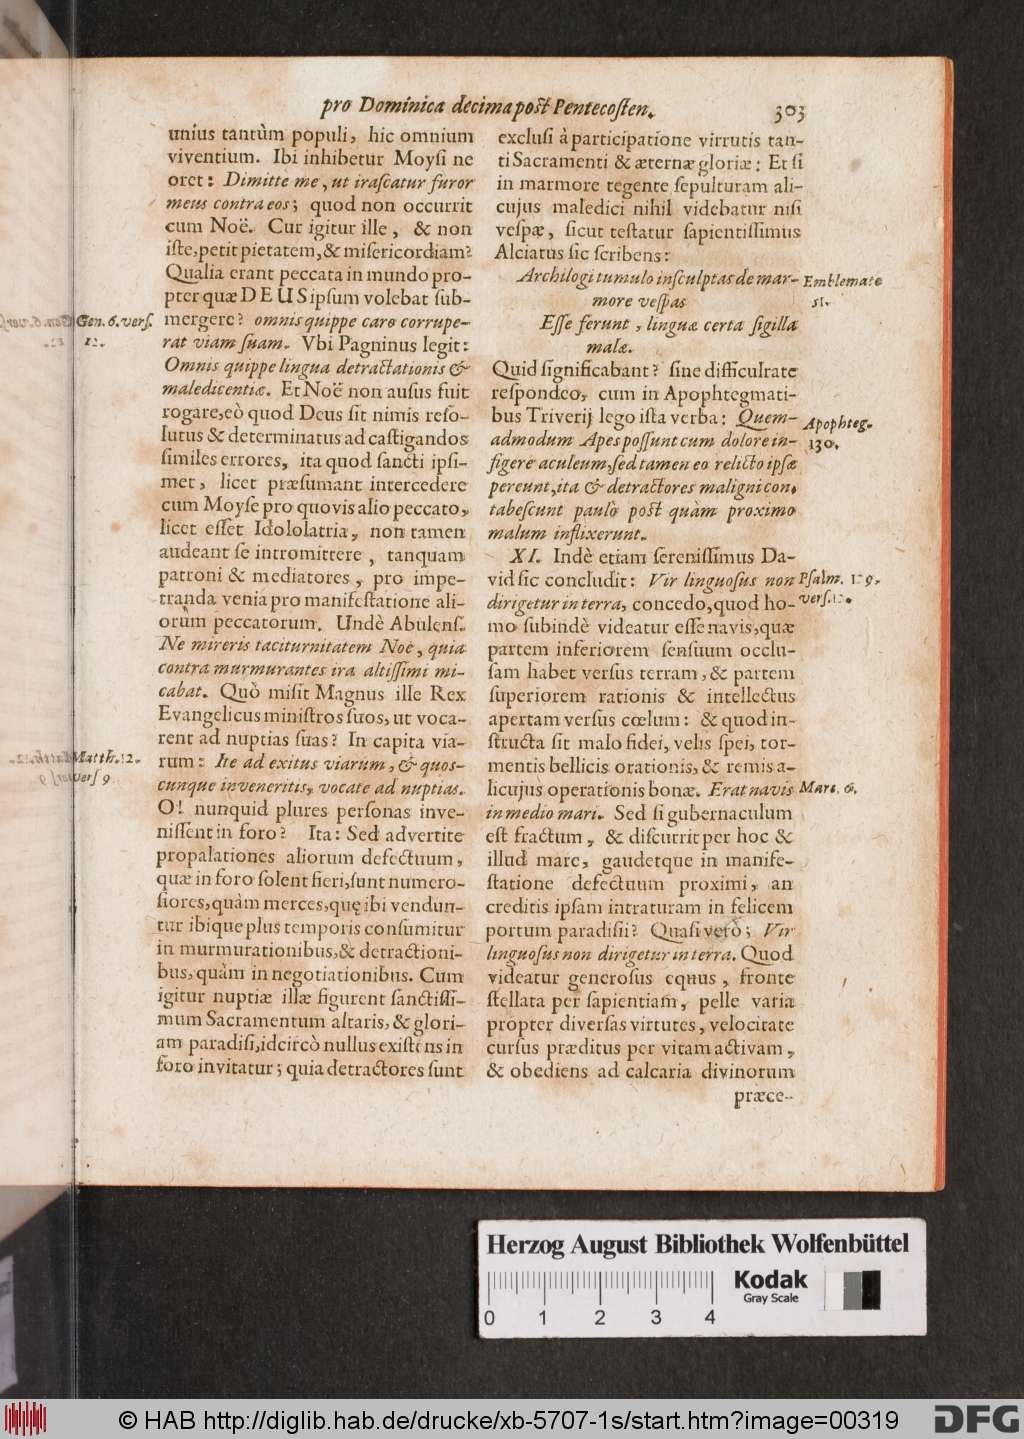 pro Dominica decima post Pentecosten. 303
unius tantùm populi, hic omnium
viventium. Ibi inhibetur Moysi ne
oret: Dimitte me, ut irascatur furor
meus contra eos; quod non occurrit
cum Noë. Cur igitur ille, & non
iste, petit pietatem, & misericordiam?
Qualia erant peccata in mundo pro-
pter quæ DEUS ipsum volebat sub-
mergere? omnis quippe caro corrupe-
rat viam suam. Vbi Pagninus legit:
Omnis quippe lingua detractationis &
maledicentiæ. Et Noë non ausus fuit
rogare, eò quod Deus sit nimis reso-
lutus & determinatus ad castigandos
similes errores, ita quod sancti ipsi-
met, licet præsumant intercedere
cum Moyse pro quovis alio peccato,
licet esset Idololatria, non tamen
audeant se intromittere, tanquam
patroni & mediatores, pro impe-
tranda venia pro manifestatione ali-
orum peccatorum. Undè Abulens.
Ne mireris taciturnitatem Noe, quia
contra murmurantes ira altissimi mi-
cabat. Quò misit Magnus ille Rex
Evangelicus ministros suos, ut voca-
rent ad nuptias suas? In capita via-
rum: Ite ad exitus viarum, & quos-
cunque inveneritis, vocate ad nuptias.
O! nunquid plures personas inve-
nissent in foro? Ita: Sed advertite
propalationes aliorum defectuum,
quæ in foro solent fieri, sunt numero-
siores, quàm merces, quę ibi vendun-
tur ibique plus temporis consumitur
in murmurationibus, & detractioni-
bus, quàm in negotiationibus. Cum
igitur nuptiæ illæ figurent sanctissi-
mum Sacramentum altaris, & glori-
am paradisi, idcircò nullus existens in
foro invitatur; quia detractores sunt
Gen. 6. vers.
12.
Matth. 22.
vers 9.
exclusi à participatione virtutis tan-
ti Sacramenti & æternæ gloriæ: Et si
in marmore tegente sepulturam ali-
cujus maledici nihil videbatur nisi
vespæ, sicut testatur sapientissimus
Alciatus sic scribens:
Archilogi tumulo insculptas de mar-
more vespas
Esse ferunt, linguæ certa sigilla
malæ.
Quid significabant? sine difficultate
respondeo, cum in Apophtegmati-
bus Triverij lego ista verba: Quem-
admodum Apes possunt cum dolore in-
figere aculeum, sed tamen eo relicto ipsæ
pereunt, ita & detractores maligni con-
tabescunt paulò post quàm proximo
malum inflixerunt.
XI. Indè etiam serenissimus Da-
vid sic concludit: Vir linguosus non
dirigetur in terra, concedo, quod ho-
mo subindè videatur esse navis, quæ
partem inferiorem sensuum occlu-
sam habet versus terram, & partem
superiorem rationis & intellectus
apertam versus cœlum: & quod in-
structa sit malo fidei, velis spei, tor-
mentis bellicis orationis, & remis a-
licujus operationis bonæ. Erat navis
in medio mari. Sed si gubernaculum
est fractum, & discurrit per hoc &
illud mare, gaudetque in manife-
statione defectuum proximi, an
creditis ipsam intraturam in felicem
portum paradisii? Quasi verò; Vir
linguosus non dirigetur in terra. Quod
videatur generosus equus, fronte
stellata per sapientiam, pelle varia
propter diversas virtutes, velocitate
cursus præditus per vitam activam,
& obediens ad calcaria divinorum
præce-
Emblemate
51.
Apophteg.
130.
Psalm. 139.
vers. 12.
Marc. 6.
Herzog August Bibliothek Wolfenbüttel
Kodak
Gray Scale
0 1 2 3 4
© HAB http://diglib.hab.de/drucke/xb-5707-1s/start.htm?image=00319
DFG